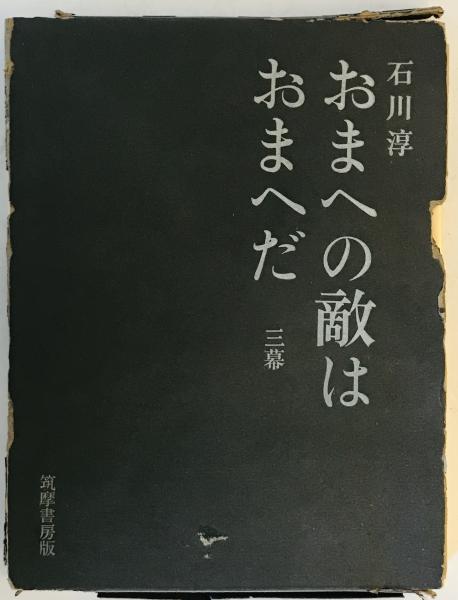 石川淳
おまへの敵は
おまへだ
三幕
筑摩書房版